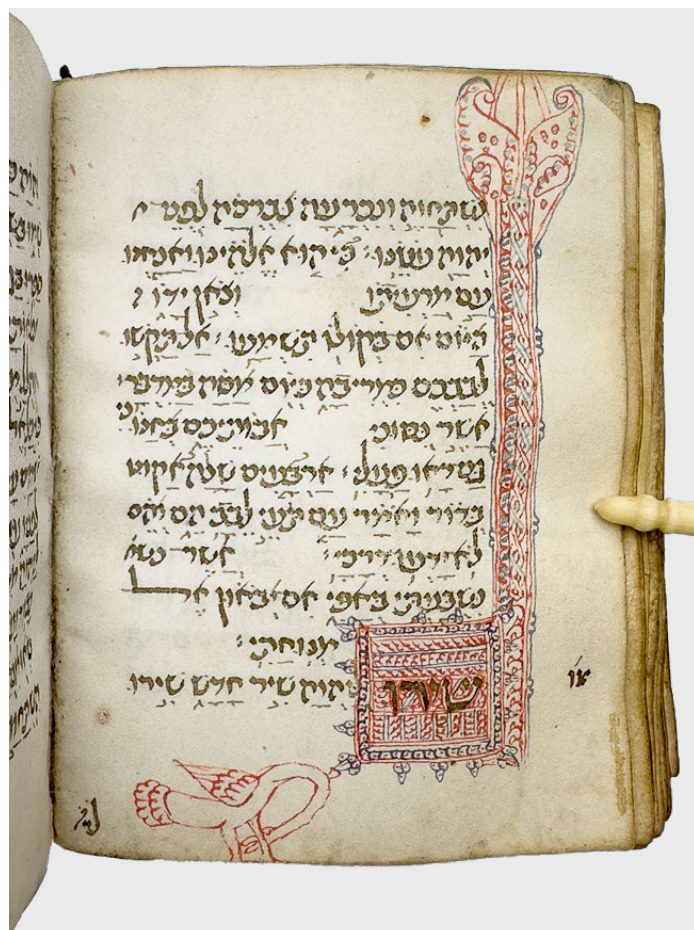 נשתחוה ונכרעה נברכה לפני
יהוה עשנו: כי הוא אלהינו ואנחנו
עם מרעיתו וצאן ידו
היום אם בקולו תשמעו: אל תקשו
לבבכם כמריבה כיום מסה במדבר
אשר נסוני אבותיכם בחנוני
גם ראו פעלי: ארבעים שנה אקוט
בדור ואמר עם תעי לבב הם והם
לא ידעו דרכי:
נשבעתי באפי אם יבאון אל
מנוחתי:
שירו ליהוה שיר חדש שירו
צו